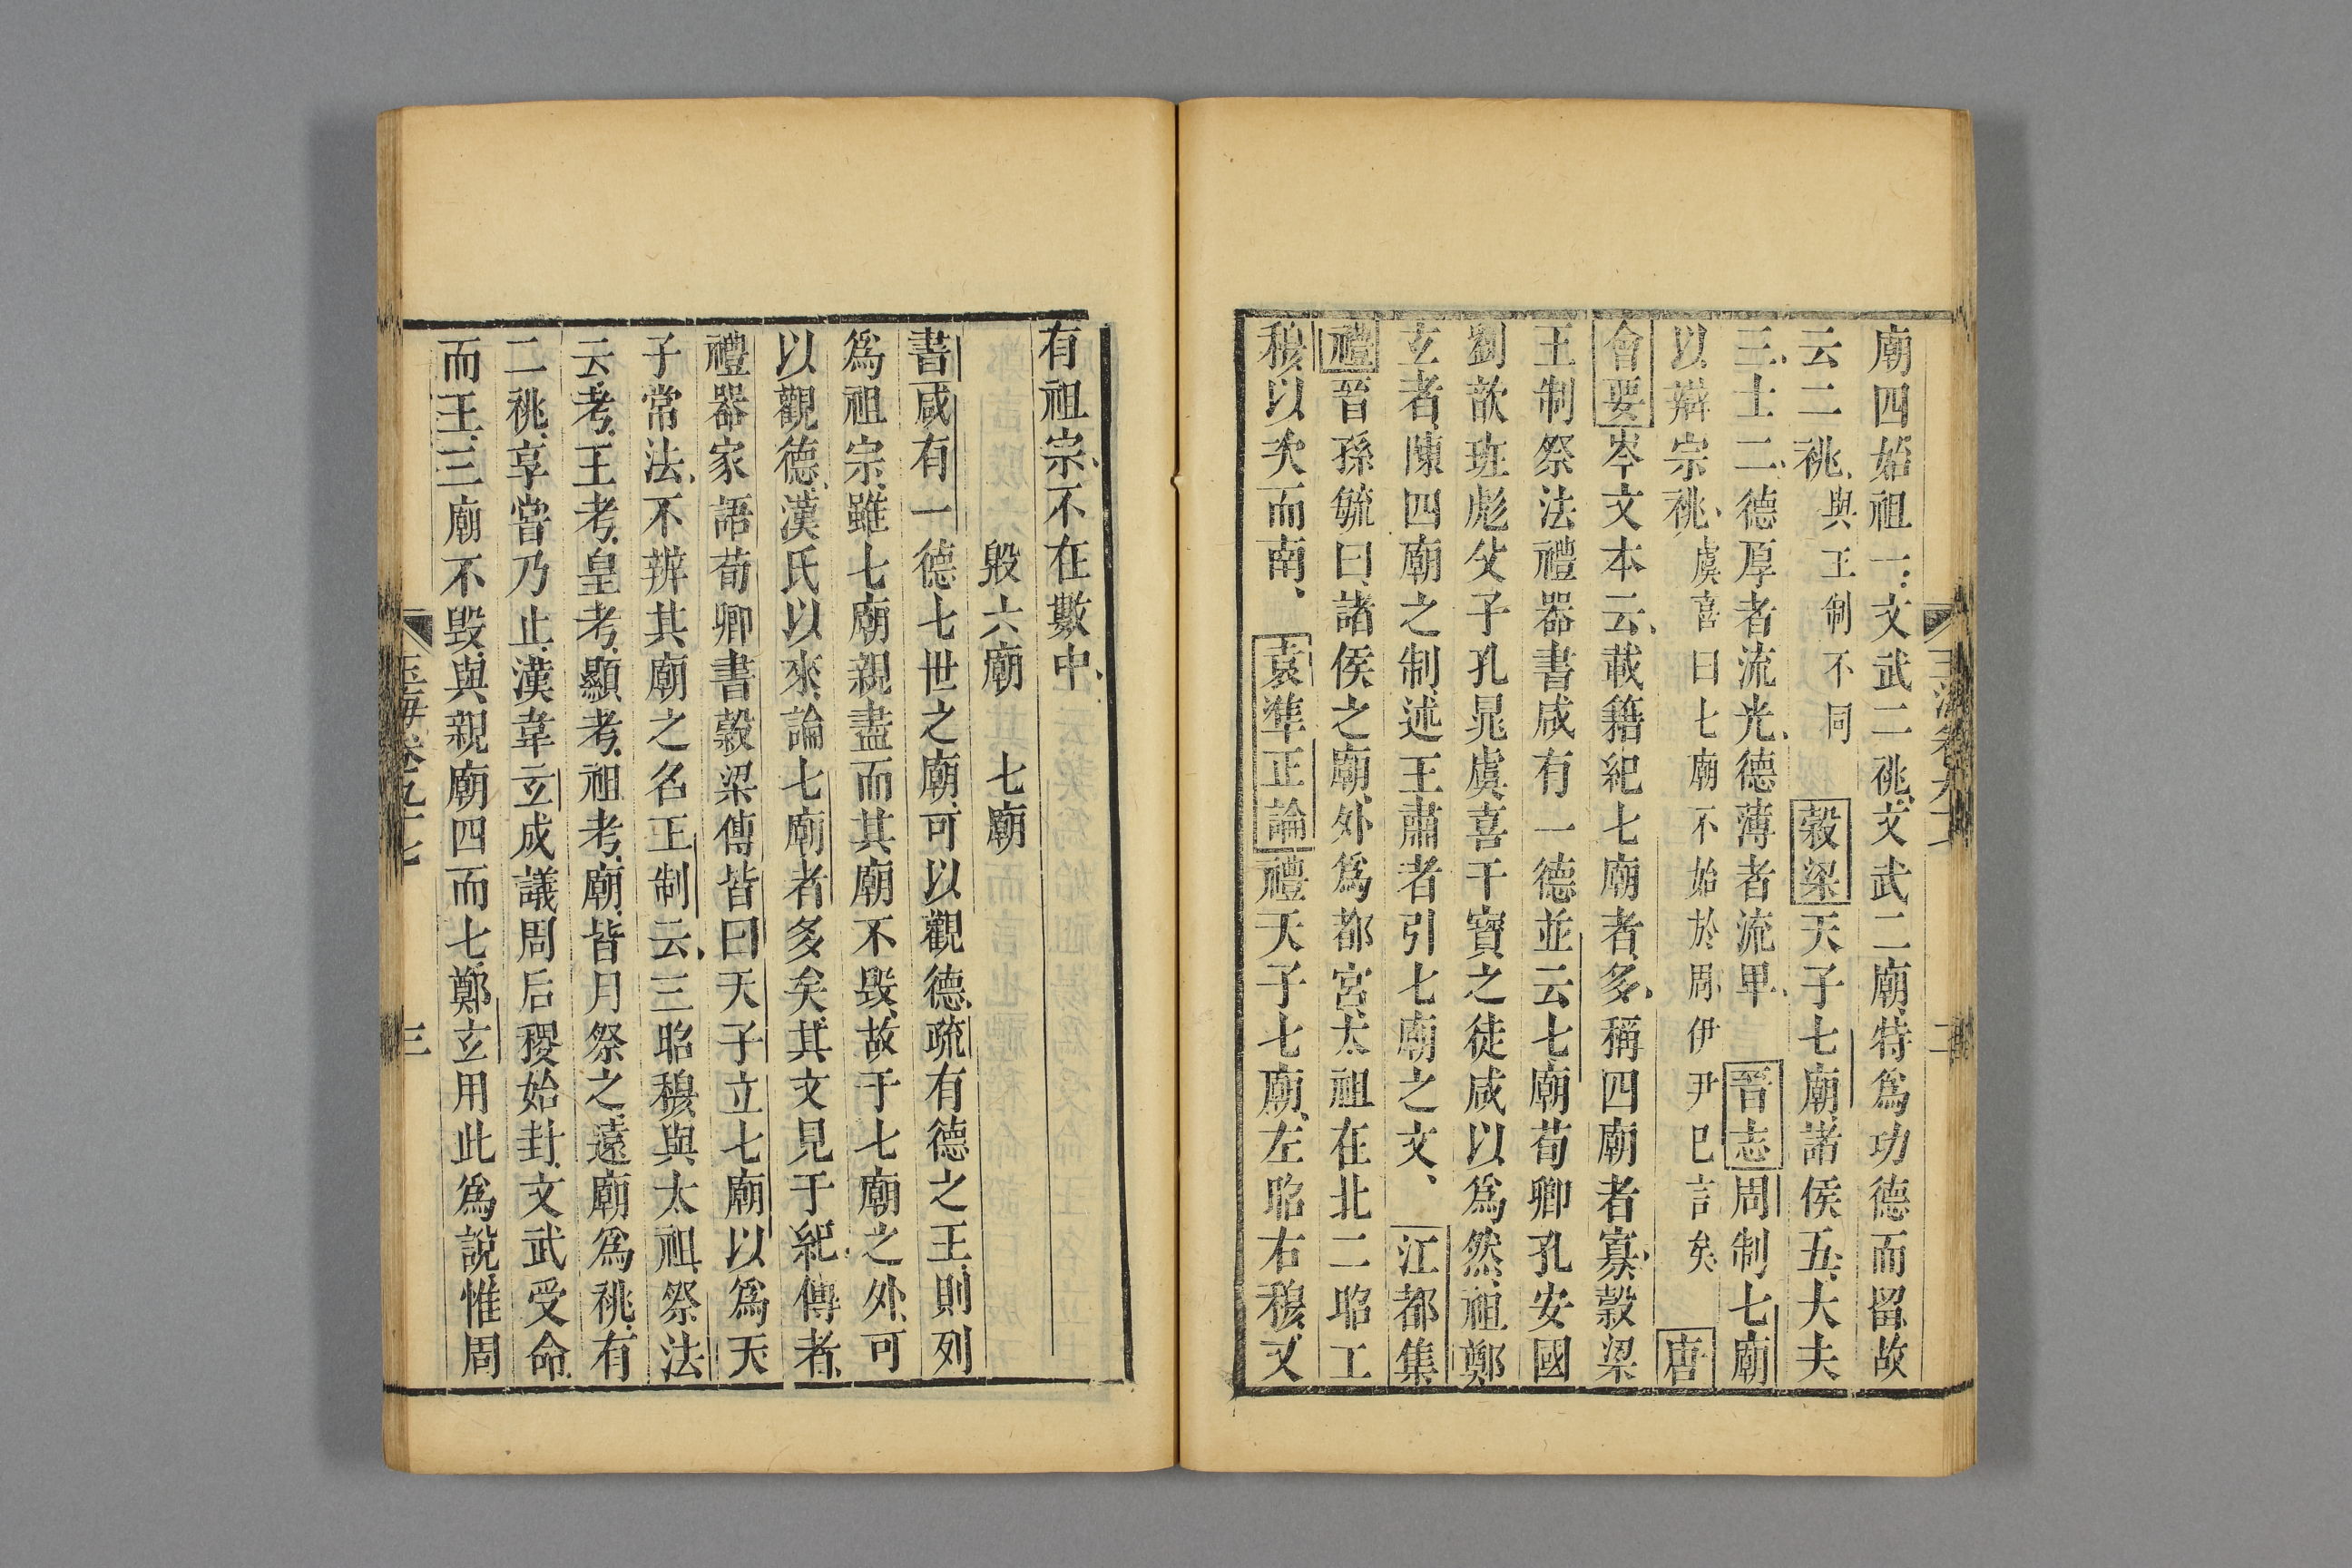 廟四始祖一文武二祧文武二廟特爲功德而留故
云二祧與王制不同穀梁天子七廟諸侯五大夫
三士二德厚者流光德薄者流卑晉志周制七廟
以辯宗祧虞喜曰七廟不始於周伊尹已言矣唐
會要岑文本云載籍紀七廟者多稱四廟者寡穀梁
王制祭法禮器書咸有一德並云七廟荀卿孔安國
劉歆班彪父子孔晁虞喜干寶之徒咸以爲然祖鄭
玄者陳四廟之制述王肅者引七廟之文江都集
禮晉孫毓曰諸侯之廟外爲都宮太祖在北二昭二
穆以次而南袁準正論禮天子七廟左昭右穆又
有祖宗不在數中
殷六廟 七廟
書咸有一德七世之廟可以觀德疏有德之王則列
爲祖宗雖七廟親盡而其廟不毀故于七廟之外可
以觀德漢氏以來論七廟者多矣其文見于紀傳者
禮器家語荀卿書穀梁傳皆曰天子立七廟以爲天
子常法不辨其廟之名王制云三昭穆與太祖祭法
云考王考皇考顯考祖考廟皆月祭之遠廟爲祧有
二祧享嘗乃止漢韋玄成議周后稷始封文武受命
而王三廟不毀與親廟四而七鄭玄用此爲說惟周
三